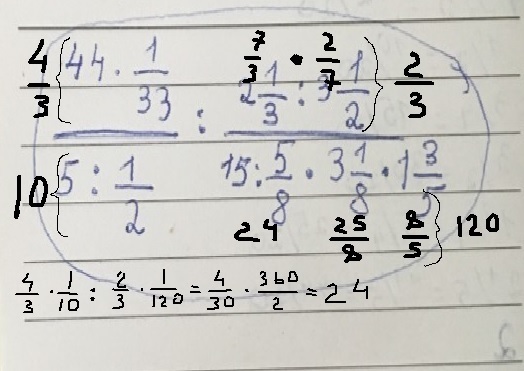 4/3 { 44 · 1/33 : 7/3 · 2/7 2 1/3 : 3 1/2 } 2/3
10 { 5 : 1/2 15 : 5/8 · 3 1/8 · 1 3/5 } 120
24 25/8 8/5
4/3 · 1/10 : 2/3 · 1/120 = 4/30 · 360/2 = 24